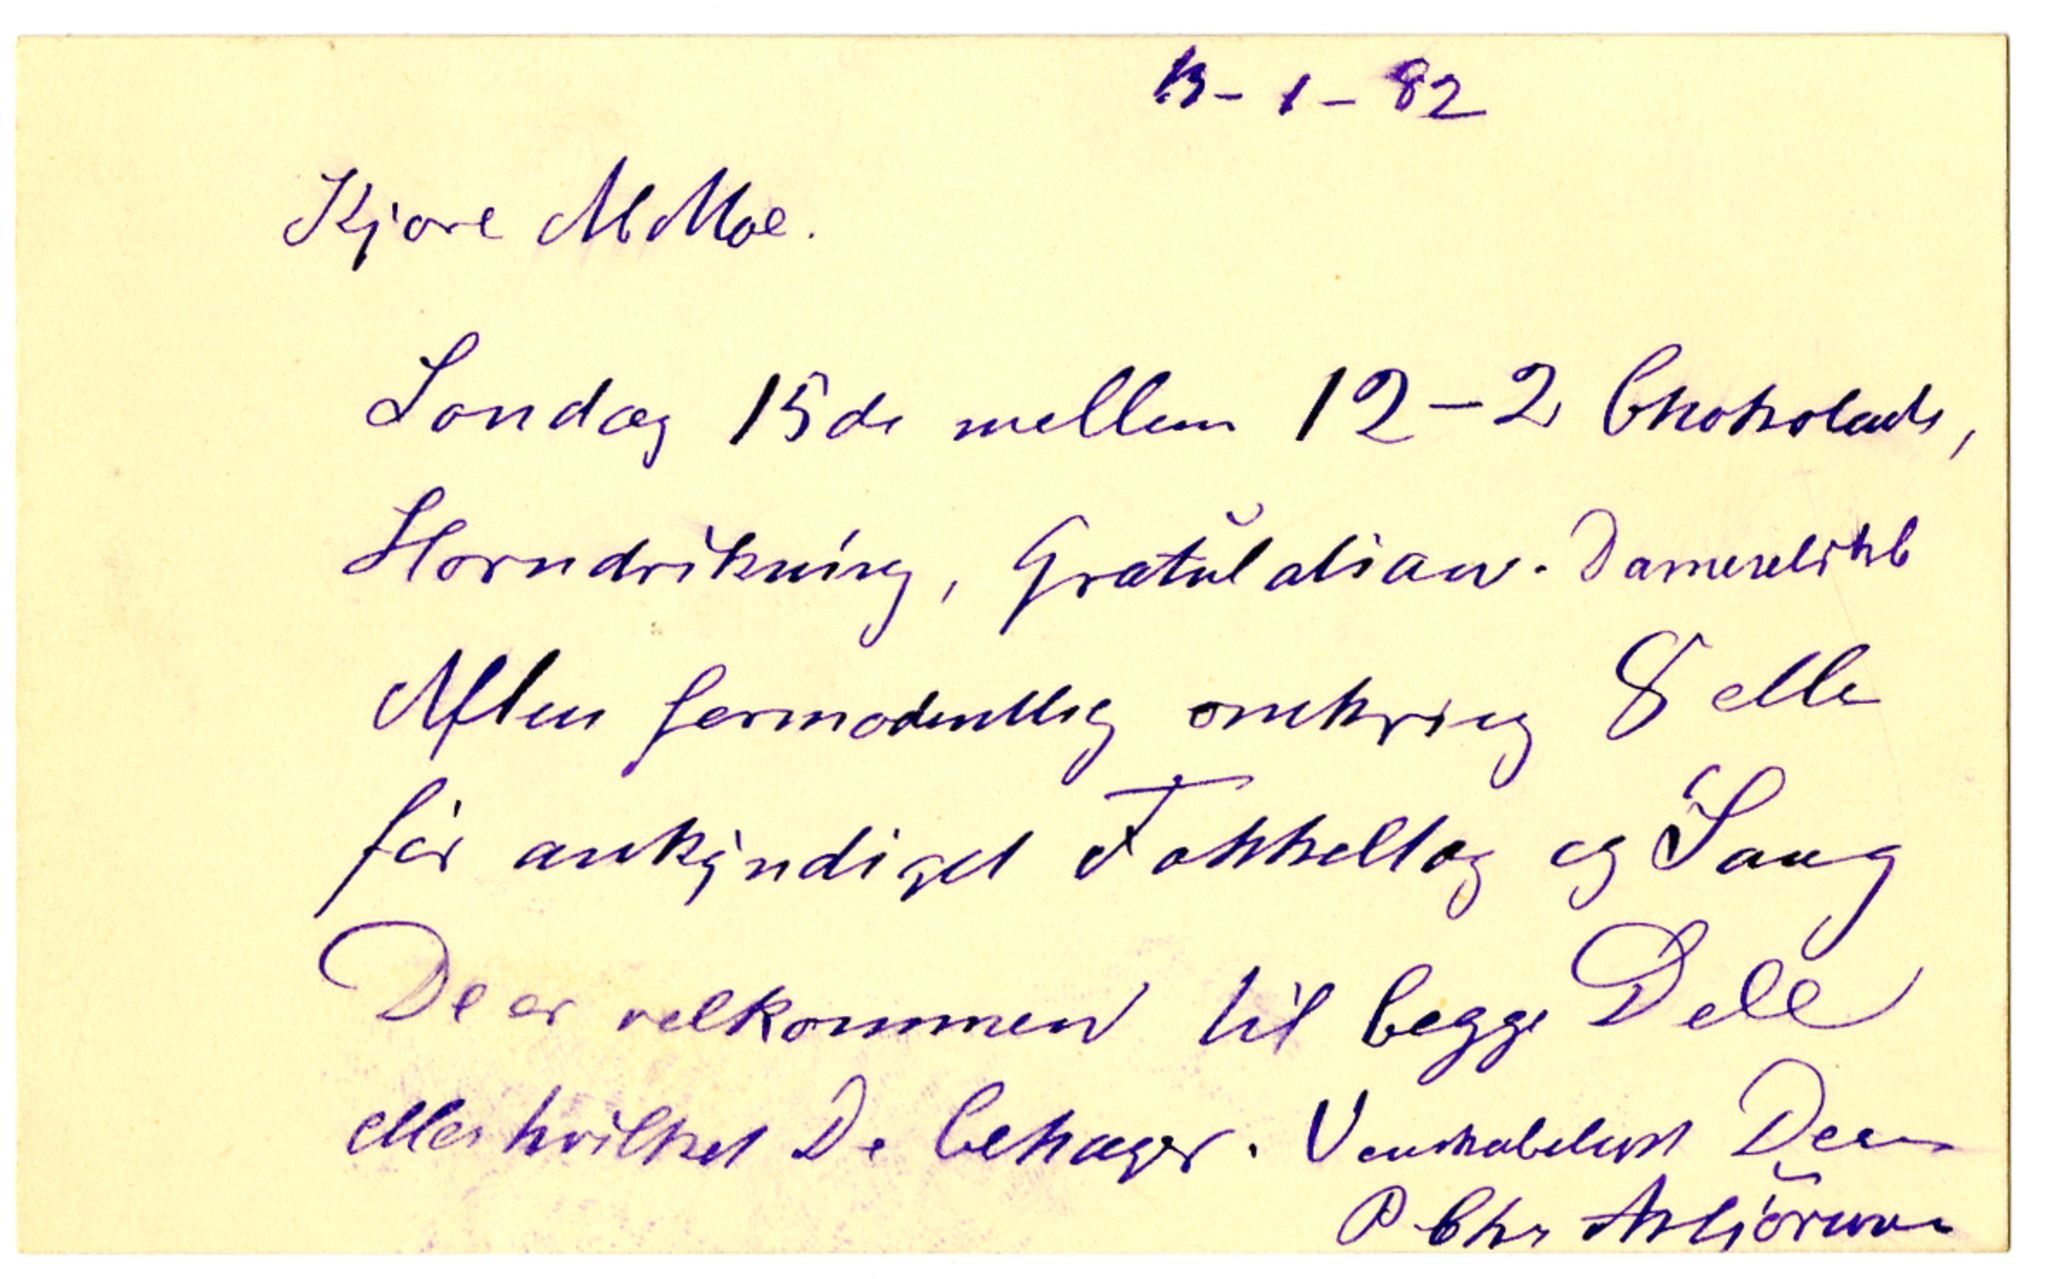 13-1-82
Kjære M Moe.
Søndag 15de mellem 12-2 Chokolade,
Horndrikning, Gratulation. Dameselskb
Aften formodentlig omkring 8 elle
før ankyndiget Fakkeltog og Sang
De er velkommen til begge Dele
eller hvilket De behager. Venskabeligst Deres
P Chr Asbjörnsen